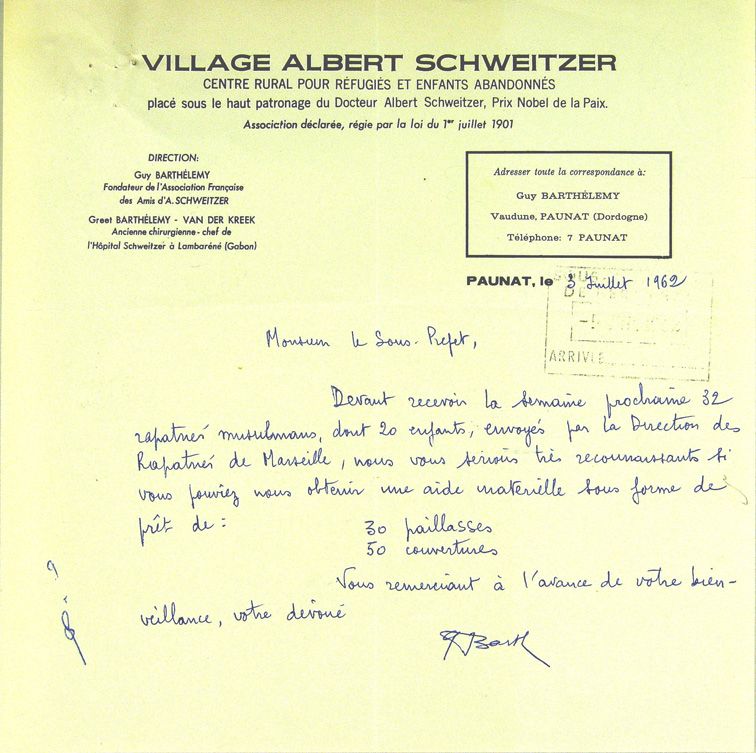 VILLAGE ALBERT SCHWEITZER
CENTRE RURAL POUR RÉFUGIÉS ET ENFANTS ABANDONNÉS
placé sous le haut patronage du Docteur Albert Schweitzer, Prix Nobel de la Paix.
Association déclarée, régie par la loi du 1er juillet 1901
DIRECTION:
Guy BARTHÉLEMY
Fondateur de l'Association Française
des Amis d'A. SCHWEITZER
Greet BARTHÉLEMY - VAN DER KREEK
Ancienne chirurgienne - chef de
l'Hôpital Schweitzer à Lambaréné (Gabon)
Adresser toute la correspondance à:
Guy BARTHÉLEMY
Vaudune, PAUNAT (Dordogne)
Téléphone: 7 PAUNAT
PAUNAT, le 3 Juillet 1962
ARRIVÉE
Monsieur le Sous-Préfet,
Devant recevoir la semaine prochaine 32
rapatriés musulmans, dont 20 enfants, envoyés par la Direction des
Rapatriés de Marseille, nous vous serions très reconnaissants si
vous pouviez nous obtenir une aide matérielle sous forme de
prêt de :
30 paillasses
50 couvertures
Vous remerciant à l'avance de votre bien-
veillance, votre dévoué